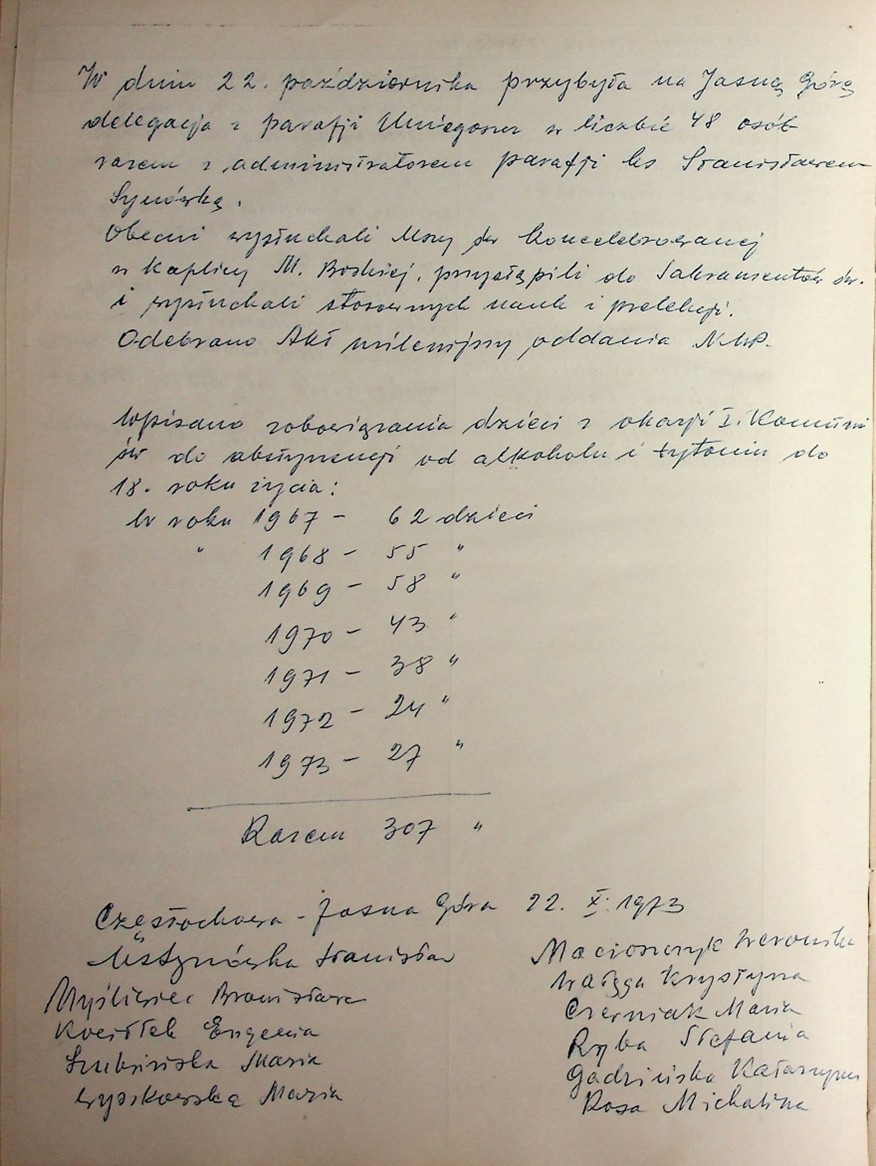 W dniu 22. października przybyła na Jasną Górę
delegacja z parafji Uniegoszcz w liczbie 48 osób
razem z administratorem parafji ks Stanisławem
Synówką.
Obecni wysłuchali Mszy św koncelebrowanej
w kaplicy M. Boskiej, przystąpili do Sakramentów św.
i wysłuchali stosownych nauk i prelekcji.
Odebrano Akt milenijny oddania N.M.P.
Wpisano zobowiązania dzieci z okazji I. Komunii
św do abstynencji od alkoholu i tytoniu do
18. roku życia:
W roku 1967 - 62 dzieci
" 1968 - 55 "
1969 - 58 "
1970 - 43 "
1971 - 38 "
1972 - 24 "
1973 - 27 "
Razem 307 "
Częstochowa - Jasna Góra 22. X. 1973
Stanisław
Macioszczyk Weronika
Myśliwiec Bronisława
Krystyna
Eugenia
Czerniak Maria
Maria
Ryba Stefania
Wyszkowska Maria
Gadzińska Katarzyna
Rosa Michalina